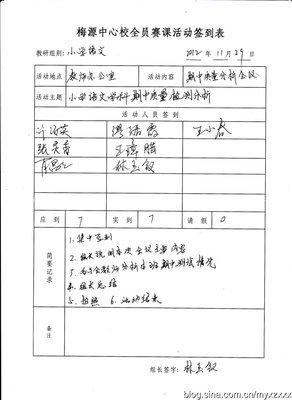 梅源中心校全员赛课活动签到表
教研组别: 小学语文 2012年11月29日
活动地点 教师办公室 活动内容 期中质量分析会议
活动主题 小学语文学科期中质量检测分析
活动人员签到
王小春
林玉钗
应到 7 实到 7 请假 0
简要记录
1. 集中签到
2. 组长说明本次会议主要内容
3. 各与会教师分析本班期中测试情况
4. 组长总结
5. 拍照 6. 活动结束
备注
组长签字: 林玉钗
blog.sina.com.cn/myxzxxx